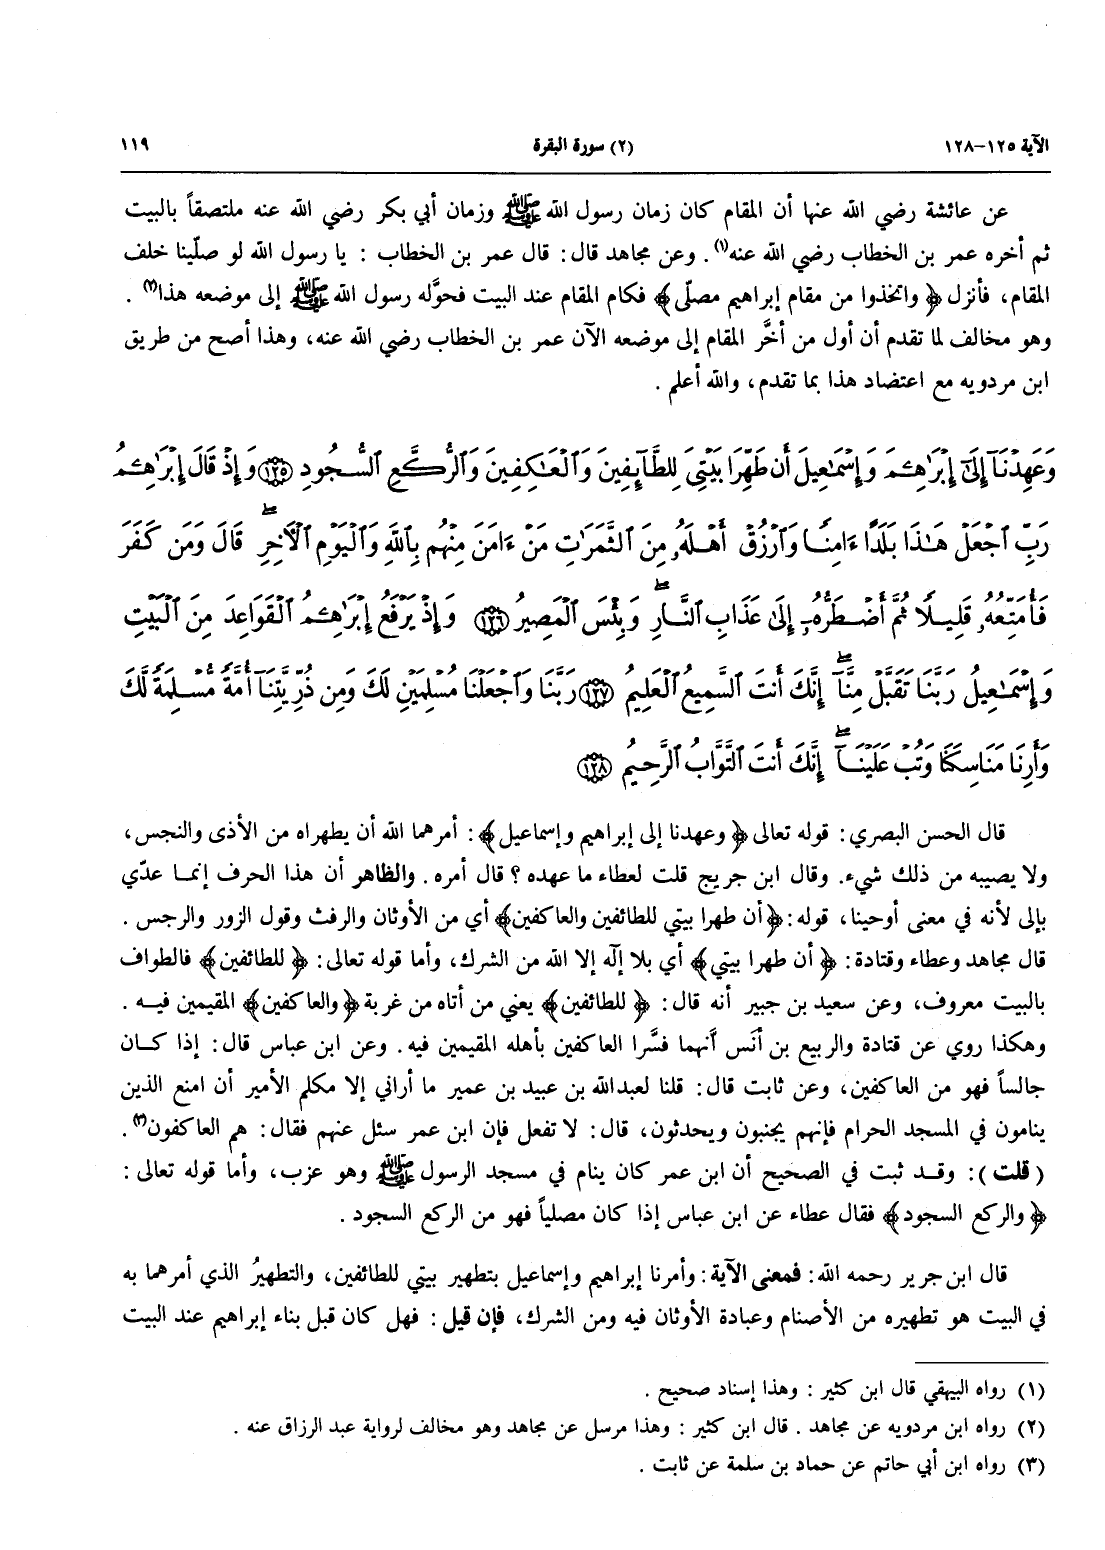 الآية ١٢٥-١٢٨
(٢) سورة البقرة
١١٩
عن عائشة رضي الله عنها أن المقام كان زمان رسول الله ﷺ وزمان أبي بكر رضي الله عنه ملتصقاً بالبيت
ثم أخره عمر بن الخطاب رضي الله عنه(١). وعن مجاهد قال: قال عمر بن الخطاب : يا رسول الله لو صلّينا خلف
المقام، فأنزل ﴿ واتخذوا من مقام إبراهيم مصلّى﴾ فكام المقام عند البيت فحوّله رسول الله ﷺ إلى موضعه هذا(٢) .
وهو مخالف لما تقدم أن أول من أخَّر المقام إلى موضعه الآن عمر بن الخطاب رضي الله عنه، وهذا أصح من طريق
ابن مردويه مع اعتضاد هذا بما تقدم، والله أعلم .
وَعَهِدْنَآ إِلَىٰٓ إِبْرَٰهِـۧمَ وَإِسْمَٰعِيلَ أَن طَهِّرَا بَيْتِىَ لِلطَّآئِفِينَ وَٱلْعَٰكِفِينَ وَٱلرُّكَّعِ ٱلسُّجُودِ ١٢٥ وَإِذْ قَالَ إِبْرَٰهِـۧمُ
رَبِّ ٱجْعَلْ هَٰذَا بَلَدًا ءَامِنًا وَٱرْزُقْ أَهْلَهُۥ مِنَ ٱلثَّمَرَٰتِ مَنْ ءَامَنَ مِنْهُم بِٱللَّهِ وَٱلْيَوْمِ ٱلْأَخِرِ ۖ قَالَ وَمَن كَفَرَ
فَأُمَتِّعُهُۥ قَلِيلًا ثُمَّ أَضْطَرُّهُۥٓ إِلَىٰ عَذَابِ ٱلنَّارِ ۖ وَبِئْسَ ٱلْمَصِيرُ ١٢٦ وَإِذْ يَرْفَعُ إِبْرَٰهِـۧمُ ٱلْقَوَاعِدَ مِنَ ٱلْبَيْتِ
وَإِسْمَٰعِيلُ رَبَّنَا تَقَبَّلْ مِنَّآ ۖ إِنَّكَ أَنتَ ٱلسَّمِيعُ ٱلْعَلِيمُ ١٢٧ رَبَّنَا وَٱجْعَلْنَا مُسْلِمَيْنِ لَكَ وَمِن ذُرِّيَّتِنَآ أُمَّةً مُّسْلِمَةً لَّكَ
وَأَرِنَا مَنَاسِكَنَا وَتُبْ عَلَيْنَآ ۖ إِنَّكَ أَنتَ ٱلتَّوَّابُ ٱلرَّحِيمُ ١٢٨
قال الحسن البصري: قوله تعالى ﴿ وعهدنا إلى إبراهيم وإسماعيل ﴾: أمرهما الله أن يطهراه من الأذى والنجس،
ولا يصيبه من ذلك شيء. وقال ابن جريج قلت لعطاء ما عهده ؟ قال أمره. والظاهر أن هذا الحرف إنما عدّي
بإلى لأنه في معنى أوحينا، قوله: ﴿أن طهرا بيتي للطائفين والعاكفين﴾ أي من الأوثان والرفث وقول الزور والرجس .
قال مجاهد وعطاء وقتادة: ﴿ أن طهرا بيتي﴾ أي بلا إلٓه إلا الله من الشرك، وأما قوله تعالى: ﴿ للطائفين﴾ فالطواف
بالبيت معروف، وعن سعيد بن جبير أنه قال: ﴿ للطائفين﴾ يعني من أتاه من غربة ﴿والعاكفين﴾ المقيمين فيه .
وهكذا روي عن قتادة والربيع بن أَنَس أَنهما فسَّرا العاكفين بأهله المقيمين فيه. وعن ابن عباس قال: إذا كان
جالساً فهو من العاكفين، وعن ثابت قال: قلنا لعبدالله بن عبيد بن عمير ما أراني إلا مكلم الأمير أن امنع الذين
ينامون في المسجد الحرام فإنهم يجنبون ويحدثون، قال: لا تفعل فإن ابن عمر سئل عنهم فقال: هم العاكفون(٣).
( قلت ): وقد ثبت في الصحيح أن ابن عمر كان ينام في مسجد الرسول ﷺ وهو عزب، وأما قوله تعالى:
﴿ والركع السجود﴾ فقال عطاء عن ابن عباس إذا كان مصلياً فهو من الركع السجود .
قال ابن جرير رحمه الله: فمعنى الآية: وأمرنا إبراهيم وإسماعيل بتطهير بيتي للطائفين، والتطهيرُ الذي أمرهما به
في البيت هو تطهيره من الأصنام وعبادة الأوثان فيه ومن الشرك، فإن قيل: فهل كان قبل بناء إبراهيم عند البيت
(١) رواه البيهقي قال ابن كثير : وهذا إسناد صحيح .
(٢) رواه ابن مردويه عن مجاهد . قال ابن كثير : وهذا مرسل عن مجاهد وهو مخالف لرواية عبد الرزاق عنه .
(٣) رواه ابن أبي حاتم عن حماد بن سلمة عن ثابت .